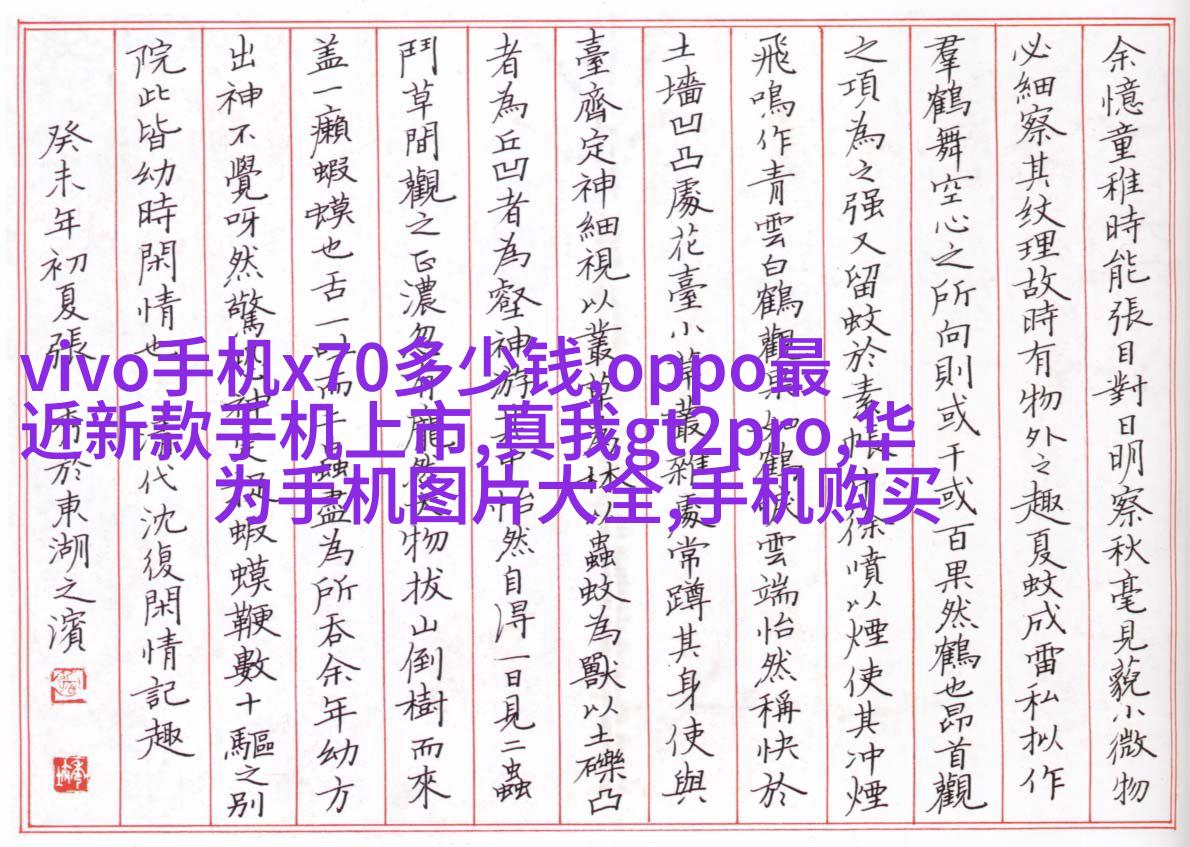 余憶童稚時能張目對日明察秋毫見藐小微物
必細察其纹理故時有物外之趣夏蚊成雷私拟作
羣鶴舞空心之所向則或千或百果然鶴也昂首觀
之項為之强又留蚊於素帳中徐噴以煙使其冲煙
飛鳴作青雲白鶴觀果如鶴唳雲端怡然稱快於
土墻凹凸處花臺小草叢雜處常蹲其身使與
臺齊定神細視以叢草為林以蟲蚊為獸以土礫凸
者為丘凹者為壑神游其中怡然自得一日見二蟲
鬥草間觀之正濃忽有龐然大物拔山倒樹而來
盖一癩蝦蟆也舌一吐而二蟲盡為所吞余年幼方
出神不覺呀然驚恐神定捉蝦蟆鞭數十驅之别
院此皆幼時閑情也 清代沈復閑情記趣
癸未年初夏張 於東湖之濱
vivo手机x70多少钱,oppo最
近新款手机上市,真我gt2pro,华
为手机图片大全,手机购买